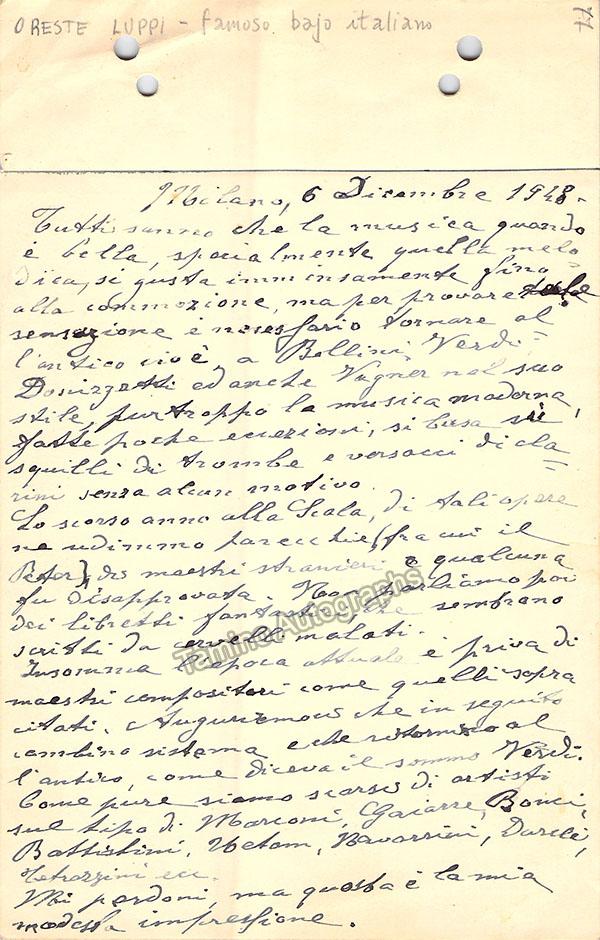 ORESTE LUPPI - famoso bajo italiano
Milano, 6 Dicembre 1948.
Tutti sanno che la musica quando
è bella, specialmente quella melo=
dica, si gusta immensamente fino
alla commozione, ma per provare tale
sensazione è necessario tornare al
l'antico cioè, a Bellini, Verdi=
Donizzetti ed anche Vagner nel suo
stile, purtroppo la musica moderna,
fatte poche eccezioni, si basa su
squilli di trombe e versacci di cla=
rini senza alcun motivo.
Lo scorso anno alla Scala, di tali opere
ne udimmo parecchie (fra cui il
Peter) di maestri stranieri e qualcuna
fu disapprovata. Non parliamo poi
dei libretti fantastici che sembrano
scritti da cervelli malati.
Tamino Autographs
Insomma l'epoca attuale è priva di
maestri compositori come quelli sopra
citati. Auguriamoci che in seguito
cambino sistema e che ritornino al
l'antico, come diceva il sommo Verdi.
Come pure siamo scarsi di artisti
sul tipo di Marconi, Gaiarre, Bonci,
Battistini, Uetam, Navarrini, Darclé,
Tetrazzini ecc.
Mi perdoni, ma questa è la mia
modesta impressione.